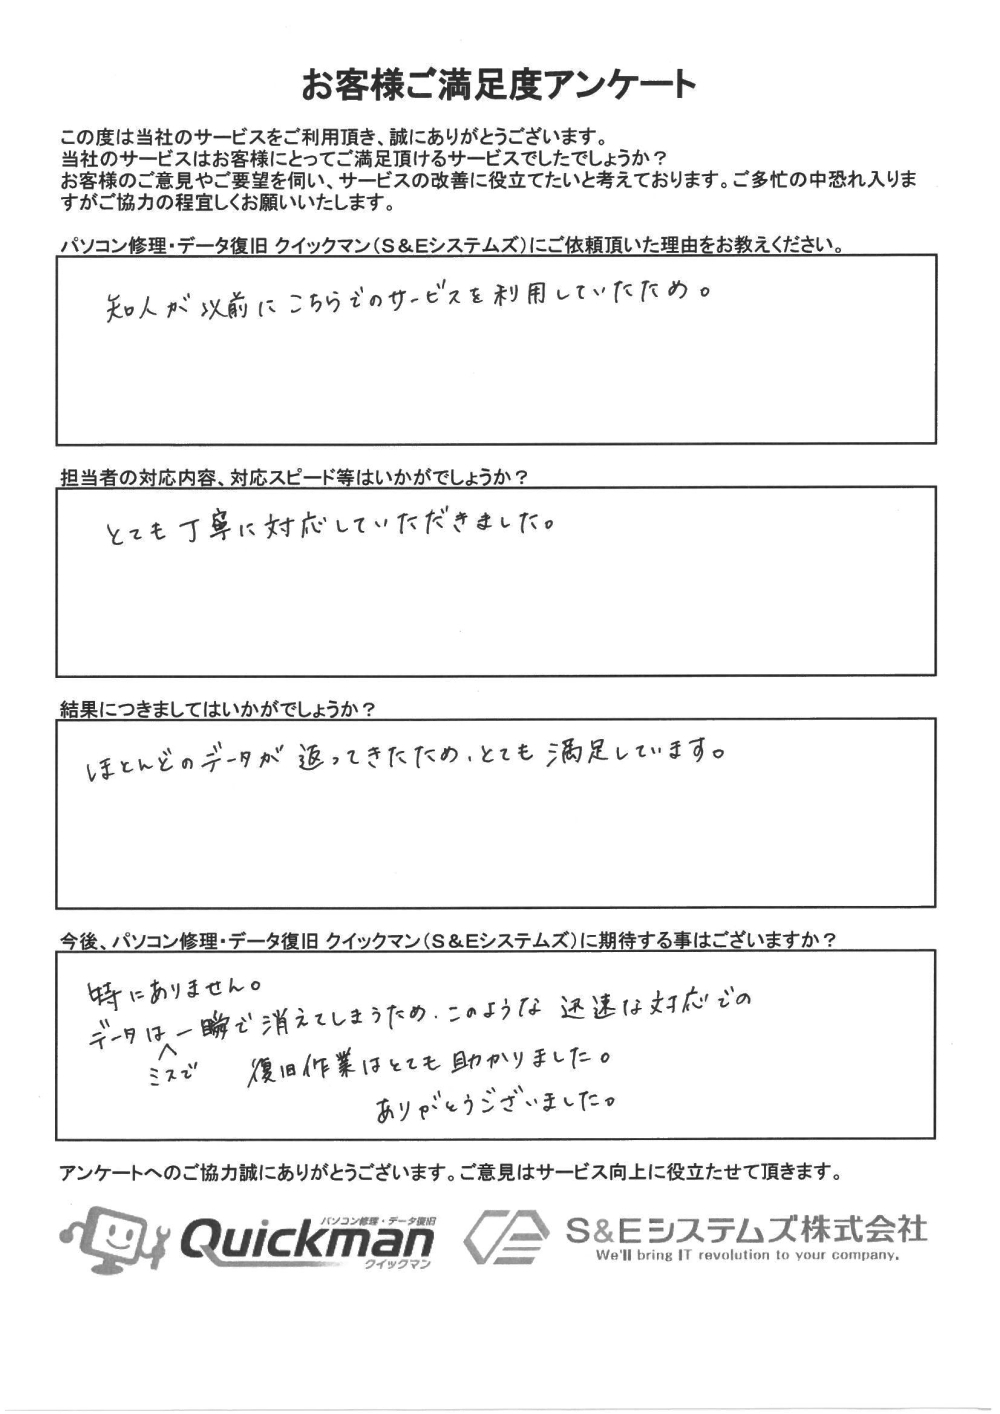 お客様ご満足度アンケート
この度は当社のサービスをご利用頂き、誠にありがとうございます。
当社のサービスはお客様にとってご満足頂けるサービスでしたでしょうか？
お客様のご意見やご要望を伺い、サービスの改善に役立てたいと考えております。ご多忙の中恐れ入りま
すがご協力の程宜しくお願いいたします。
パソコン修理・データ復旧 クイックマン（S＆Eシステムズ）にご依頼頂いた理由をお教えください。
知人が以前にこちらでのサービスを利用していたため。
担当者の対応内容、対応スピード等はいかがでしょうか？
とても丁寧に対応していただきました。
結果につきましてはいかがでしょうか？
ほとんどのデータが返ってきたため、とても満足しています。
今後、パソコン修理・データ復旧 クイックマン（S＆Eシステムズ）に期待する事はございますか？
特にありません。
データは一瞬で消えてしまうため、このような迅速な対応での
ミスで
復旧作業はとても助かりました。
ありがとうございました。
アンケートへのご協力誠にありがとうございます。ご意見はサービス向上に役立たせて頂きます。
パソコン修理・データ復旧
Quickman
クイックマン
S&Eシステムズ株式会社
We'll bring IT revolution to your company.